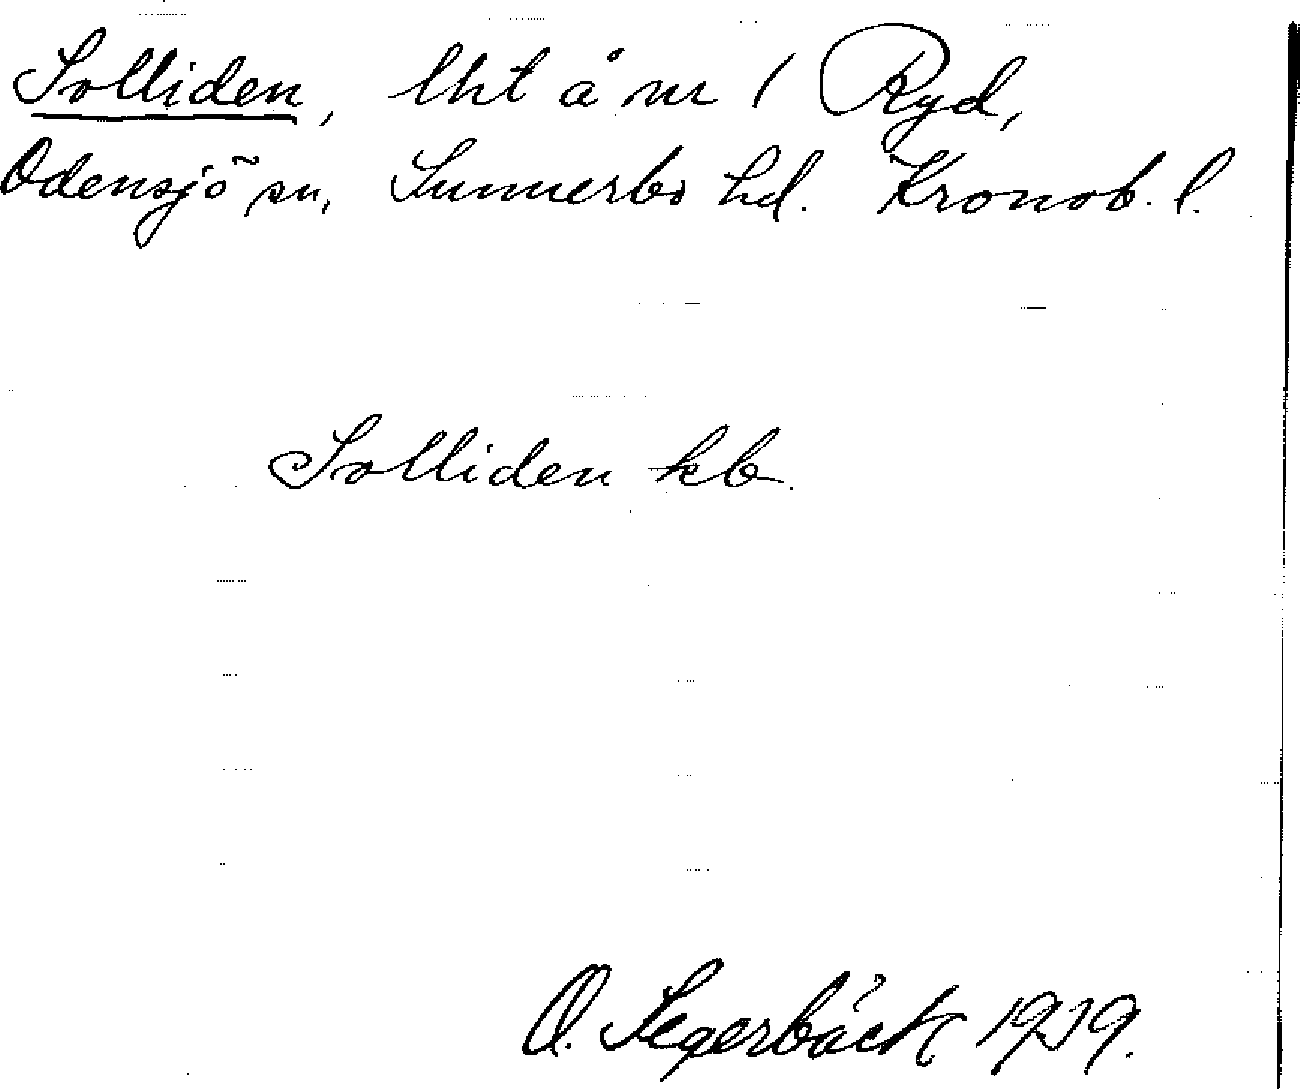 Solliden, lht å nr 1 Ryd,
Odensjö sn, Sunnerbo hd. Kronob. l.
Solliden kb.
O. Segerbäck 1939.